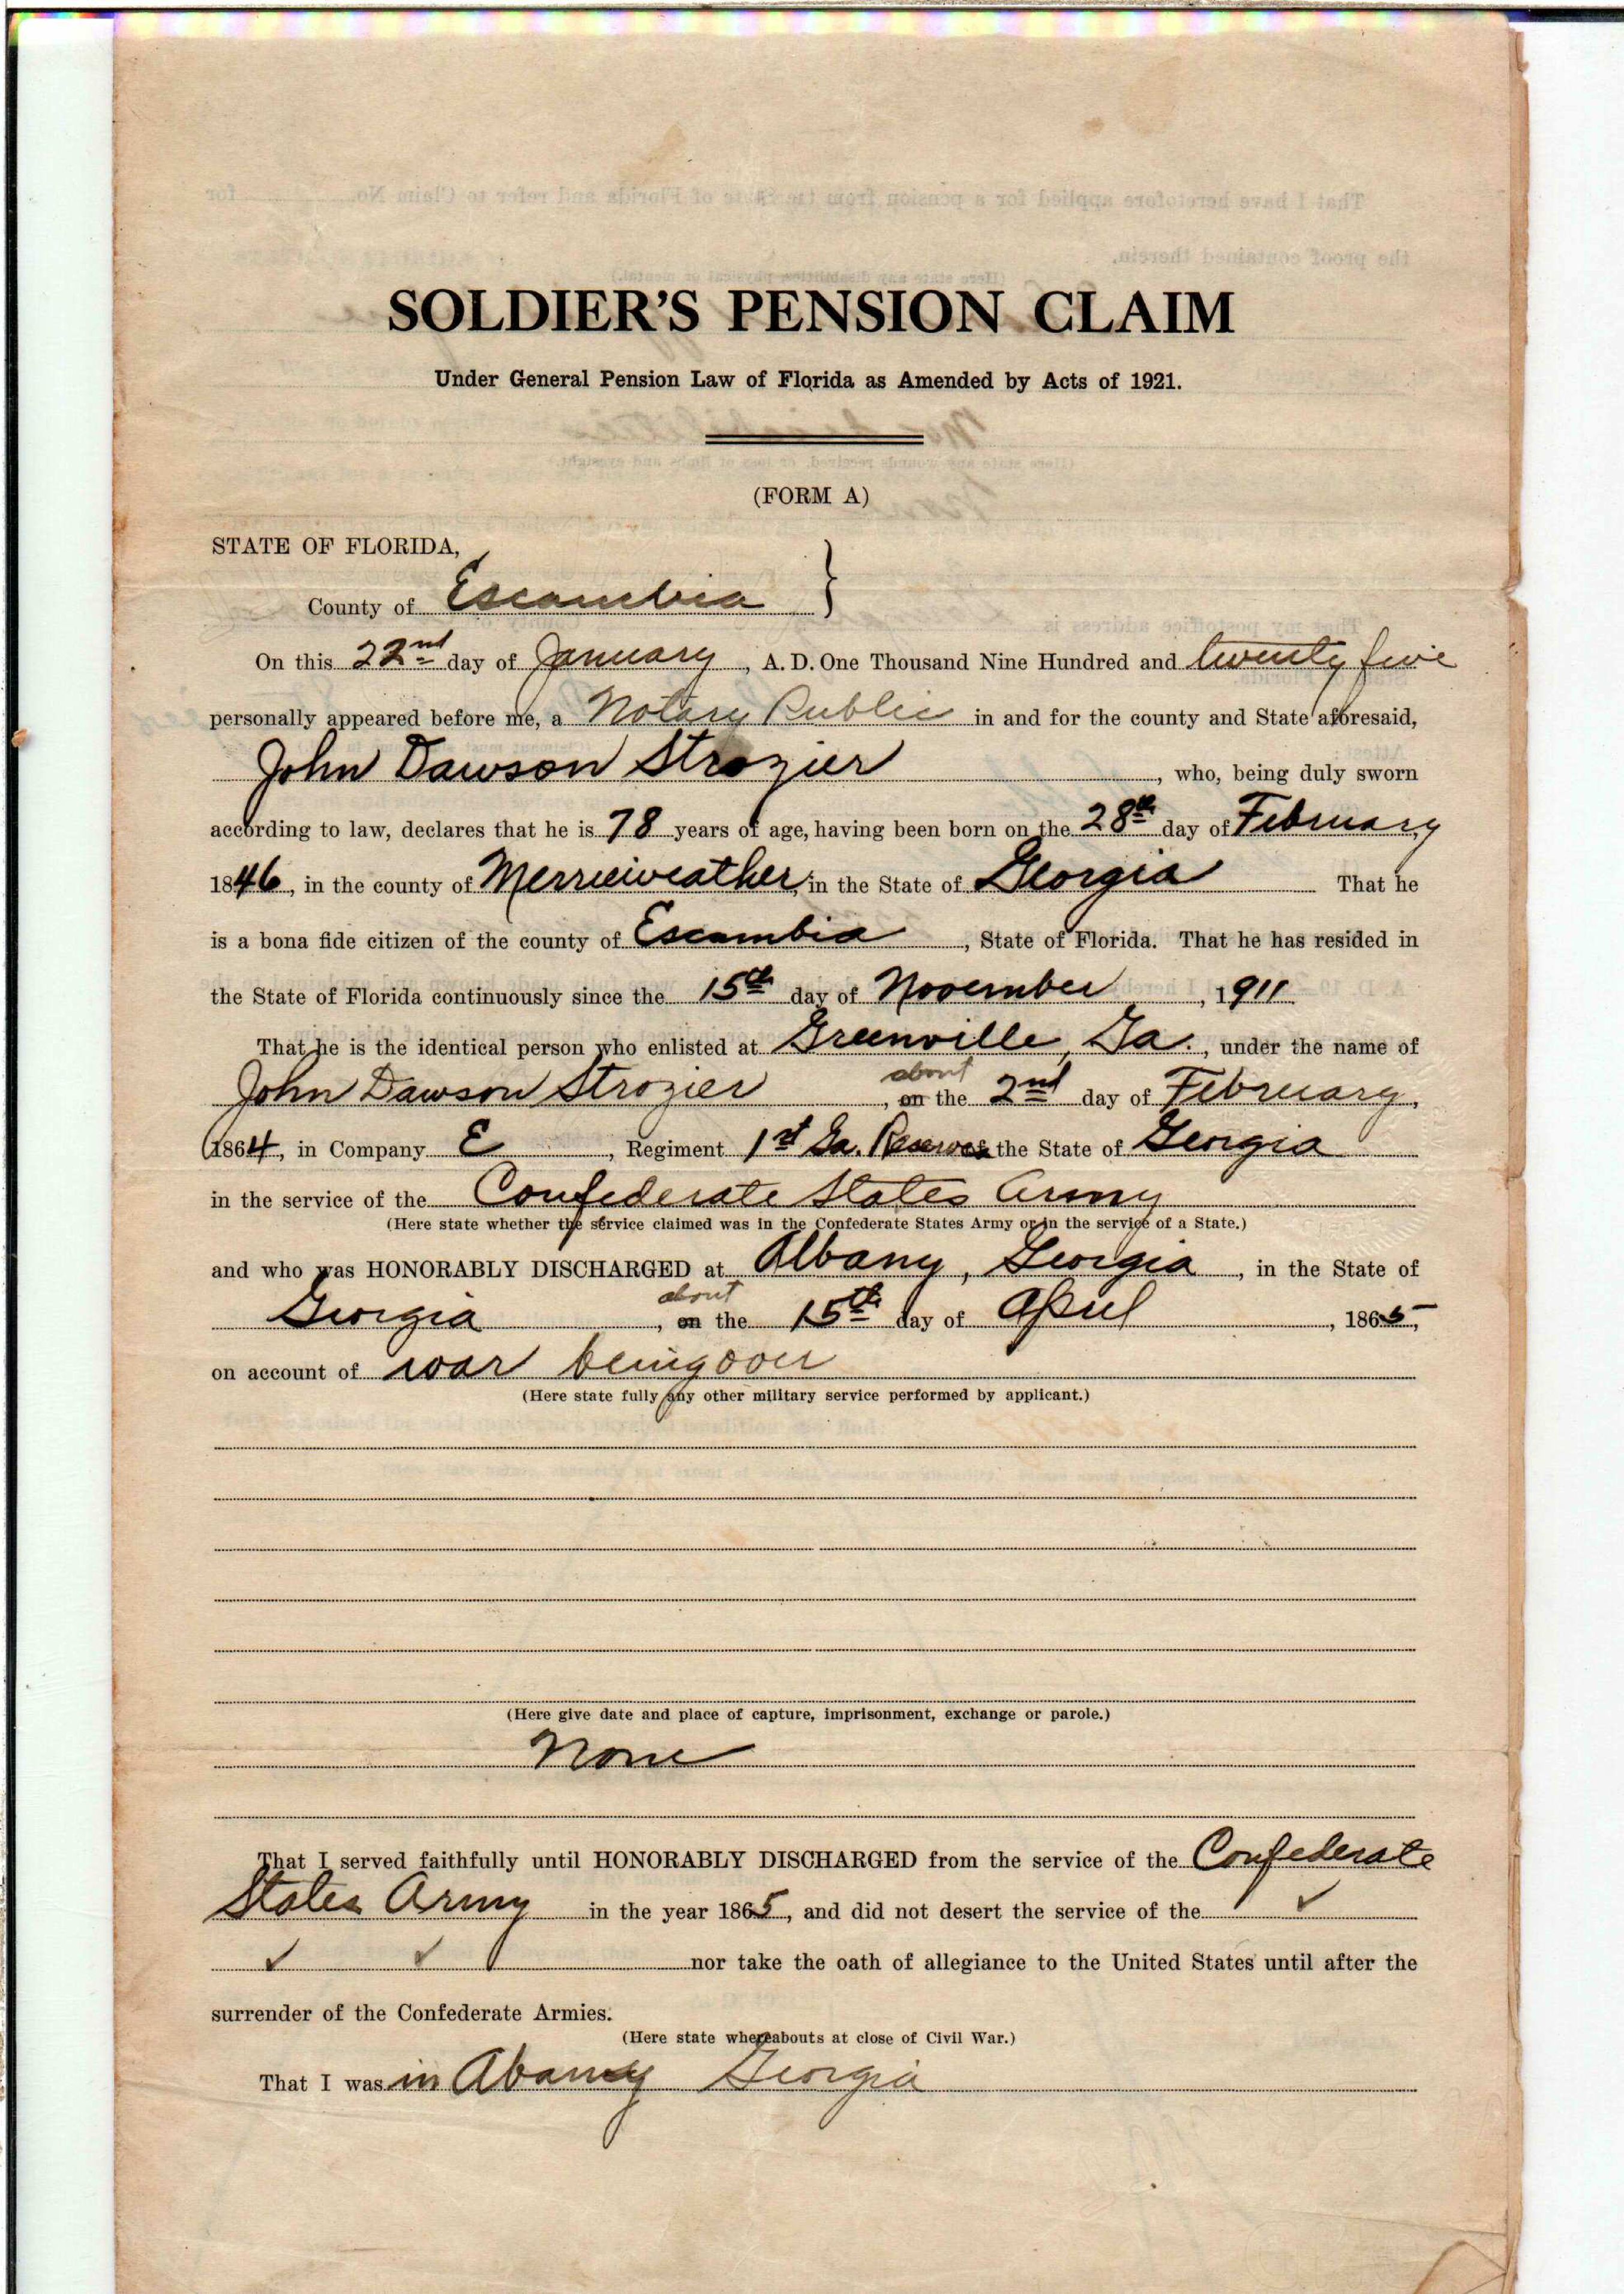 SOLDIER'S PENSION CLAIM
Under General Pension Law of Florida as Amended by Acts of 1921.
(FORM A)
STATE OF FLORIDA,
County of Escambia }
On this 22nd day of January, A. D. One Thousand Nine Hundred and twenty five
personally appeared before me, a Notary Public in and for the county and State aforesaid,
John Dawson Strozier, who, being duly sworn
according to law, declares that he is 78 years of age, having been born on the 28th day of February
1846, in the county of Merrieweather, in the State of Georgia That he
is a bona fide citizen of the county of Escambia, State of Florida. That he has resided in
the State of Florida continuously since the 15th day of November, 1911
That he is the identical person who enlisted at Greenville, Ga., under the name of
about
John Dawson Strozier, on the 2nd day of February,
1864, in Company E, Regiment 1st Ga. Reserves the State of Georgia
in the service of the Confederate States Army
(Here state whether the service claimed was in the Confederate States Army or in the service of a State.)
and who was HONORABLY DISCHARGED at Albany, Georgia, in the State of
about
Georgia, on the 15th day of April, 1865,
on account of war being over
(Here state fully any other military service performed by applicant.)
(Here give date and place of capture, imprisonment, exchange or parole.)
None
That I served faithfully until HONORABLY DISCHARGED from the service of the Confederate
States Army in the year 1865, and did not desert the service of the ✓
✓ ✓ nor take the oath of allegiance to the United States until after the
surrender of the Confederate Armies.
(Here state whereabouts at close of Civil War.)
That I was in Abany Georgia